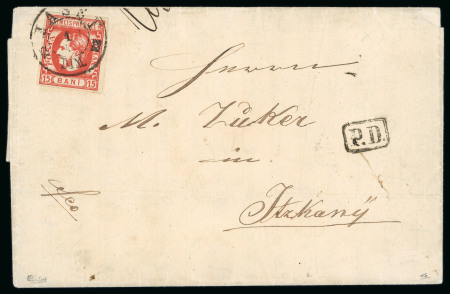 JASSY
15 BANI 15
Herrn
M. Zuker
P.D.
in
Itzkany